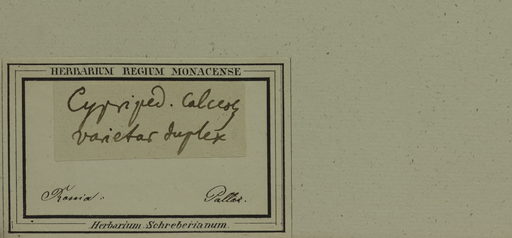 HERBARIUM REGIUM MONACENSE
Cypriped. Calceol
varietas duplex
Rossia. Pallas.
Herbarium Schreberianum